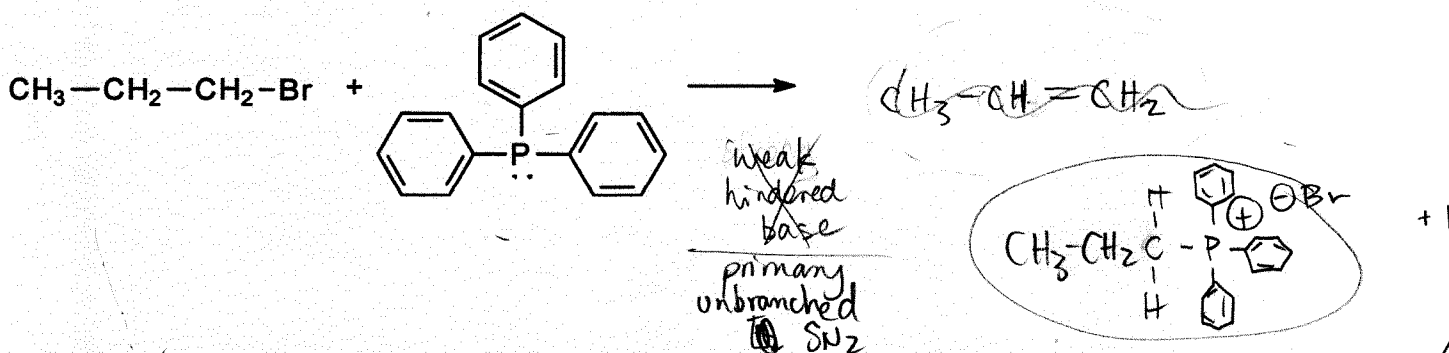 CH3-CH2-CH2-Br +
P
CH3-CH=CH2
weak
hindered
base
primary
unbranched
SN2
CH3-CH2 C - P ⊕ ⊖Br
H
H
+